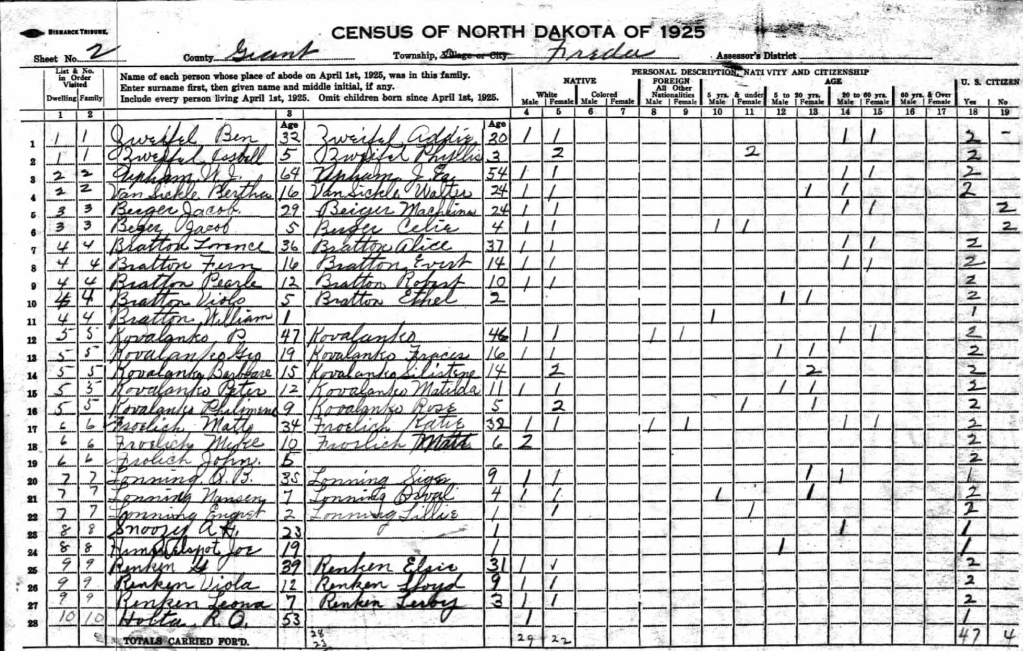 BISMARCK TRIBUNE.
CENSUS OF NORTH DAKOTA OF 1925
Sheet No. 2 County Grant Township, Village or City Freda Assessor's District
List & No. in Order Visited
Dwelling Family
Name of each person whose place of abode on April 1st, 1925, was in this family.
Enter surname first, then given name and middle initial, if any.
Include every person living April 1st, 1925. Omit children born since April 1st, 1925.
PERSONAL DESCRIPTION, NATIVITY AND CITIZENSHIP
NATIVE FOREIGN All Other Nationalities AGE U. S. CITIZEN
White Colored 5 yrs. & under 5 to 20 yrs. 20 to 60 yrs. 60 yrs. & Over
Male Female Male Female Male Female Male Female Male Female Male Female Male Female Yes No
1 2 3 4 5 6 7 8 9 10 11 12 13 14 15 16 17 18 19
Age Age
1 1 1 Zweifel Ben 32 Zweifel Addie 30 1 1 1 1 2 -
2 1 1 Zweifel 5 Zweifel Phyllis 3 2 2 2
3 2 2 Upham W. J. 64 Upham 54 1 1 1 1 2
4 2 2 Van Sickle Bertha 16 Van Sickle Walter 24 1 1 1 1 2
5 3 3 Beiger Jacob 29 Beiger 24 1 1 1 1 2
6 3 3 Beger Jacob 5 Beiger Celia 4 1 1 1 1 2
7 4 4 Bratton Lorence 36 Bratton Alice 37 1 1 1 1 2
8 4 4 Bratton Fern 16 Bratton Evert 14 1 1 1 1 2
9 4 4 Bratton Pearle 12 Bratton Robert 10 1 1 2
10 4 4 Bratton Viola 5 Bratton Ethel 2 1 1 2
11 4 4 Bratton William 1 1 1
12 5 5 Kovalanko P. 47 Kovalanko 46 1 1 1 1 1 1 2
13 5 5 Kovalanko Geo 19 Kovalanko Fraces 16 1 1 1 1 2
14 5 5 Kovalanko Barbbare 15 Kovalanko Silistene 14 2 2 2
15 5 5 Kovalanko Peter 12 Kovalanko Matilda 11 1 1 1 1 2
16 5 5 Kovalanko Philomene 9 Kovalanko Rose 5 2 1 1 2
17 6 6 Froelich Matt 34 Froelich Katie 32 1 1 1 1 1 1 2
18 6 6 Froelich Mike 10 Froelich Matt 6 2 2
19 6 6 Frolich John. 5 2
20 7 7 Lonning O. B. 35 Lonning 9 1 1 1 1 1
21 7 7 Lonning Nansen 7 Lonning Orval 4 1 1 1 1 2
22 7 7 Lonning 2 Lonning Lillie 1 1 1 2
23 8 8 Snoozy A. H. 23 1 1 1
24 8 8 Joe 19 1 1 1
25 9 9 Renken 39 Renken Elsie 31 1 1 2
26 9 9 Renken Viola 12 Renken Lloyd 9 1 1 2
27 9 9 Renken Leona 7 Renken 3 1 1 2
28 10 10 Holta R. O. 53 1 1
TOTALS CARRIED FOR'D. 28 23 29 22 47 4